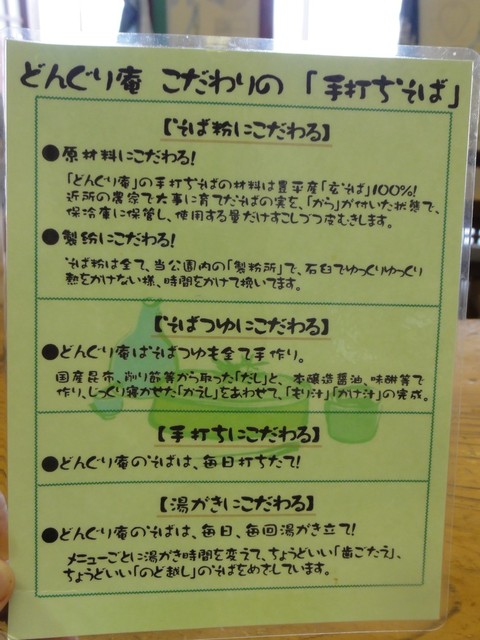 どんぐり庵 こだわりの 「手打ちそば」
【そば粉にこだわる】
●原材料にこだわる!
「どんぐり庵」の手打ちそばの材料は豊平産「玄そば」100%!
近所の農家で大事に育てたそばの実を、「がら」が付いた状態で、
保冷庫に保管し、使用する量だけすこしづつ皮むきします。
●製粉にこだわる!
そば粉は全て、当公園内の「製粉所」で、石臼でゆっくりゆっくり
熱をかけない様、時間をかけて挽いてます。
【そばつゆにこだわる】
●どんぐり庵はそばつゆも全て手作り。
国産昆布、削り節等から取った「だし」と、本醸造醤油、味醂等で
作り、じっくり寝かせた「かえし」をあわせて、「もり汁」「かけ汁」の完成。
【手打ちにこだわる】
●どんぐり庵のそばは、毎日打ちたて!
【湯がきにこだわる】
●どんぐり庵のそばは、毎日、毎回湯がき立て!
メニューごとに湯がき時間を変えて、ちょうどいい「歯ごたえ」、
ちょうどいい「のど越し」のそばをめざしています。